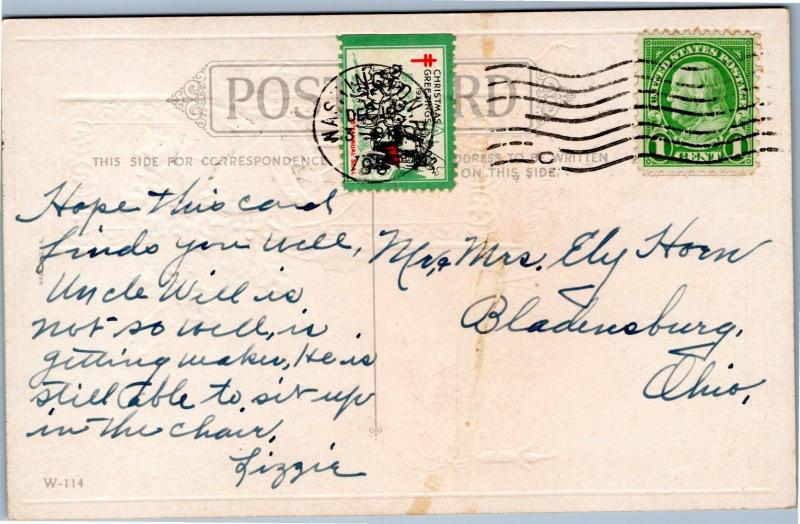 POST CARD
THIS SIDE FOR CORRESPONDENCE
ADDRESS TO BE WRITTEN
ON THIS SIDE
CHRISTMAS
GREETINGS
UNITED STATES POSTAGE
1 CENT 1
Hope this card
finds you well,
Uncle Will is
not so well, is
getting weaker, He is
still able to sit up
in the chair.
Lizzie
Mr. & Mrs. Ely Horn
Bladensburg,
Ohio,
W-114